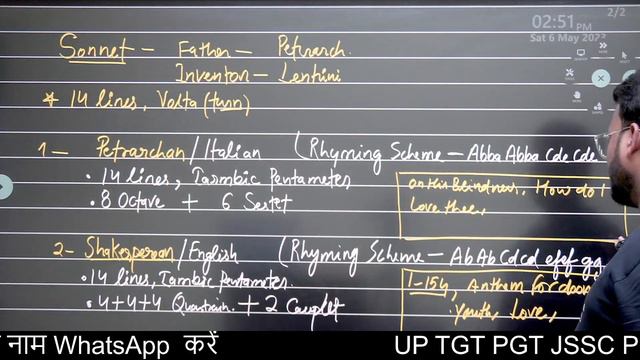 2/2
02:51 PM
Sat 6 May 2023
Sonnet – Father – Petrarch.
Inventor – Lentini
* 14 lines, Volta (turn)
1 – Petrarchan / Italian (Rhyming Scheme – Abba Abba Cde Cde
• 14 lines, Iambic Pentameter
• 8 Octave + 6 Sestet
on His Blindness, How do I
Love thee,
2 – Shakesperean / English (Rhyming Scheme – AbAb Cdcd efef gg
• 14 lines, Iambic Pentameter.
• 4+4+4 Quatrain + 2 Couplet
1–154, Anthem for doom
Youth, Love,
नाम WhatsApp करें UP TGT PGT JSSC P